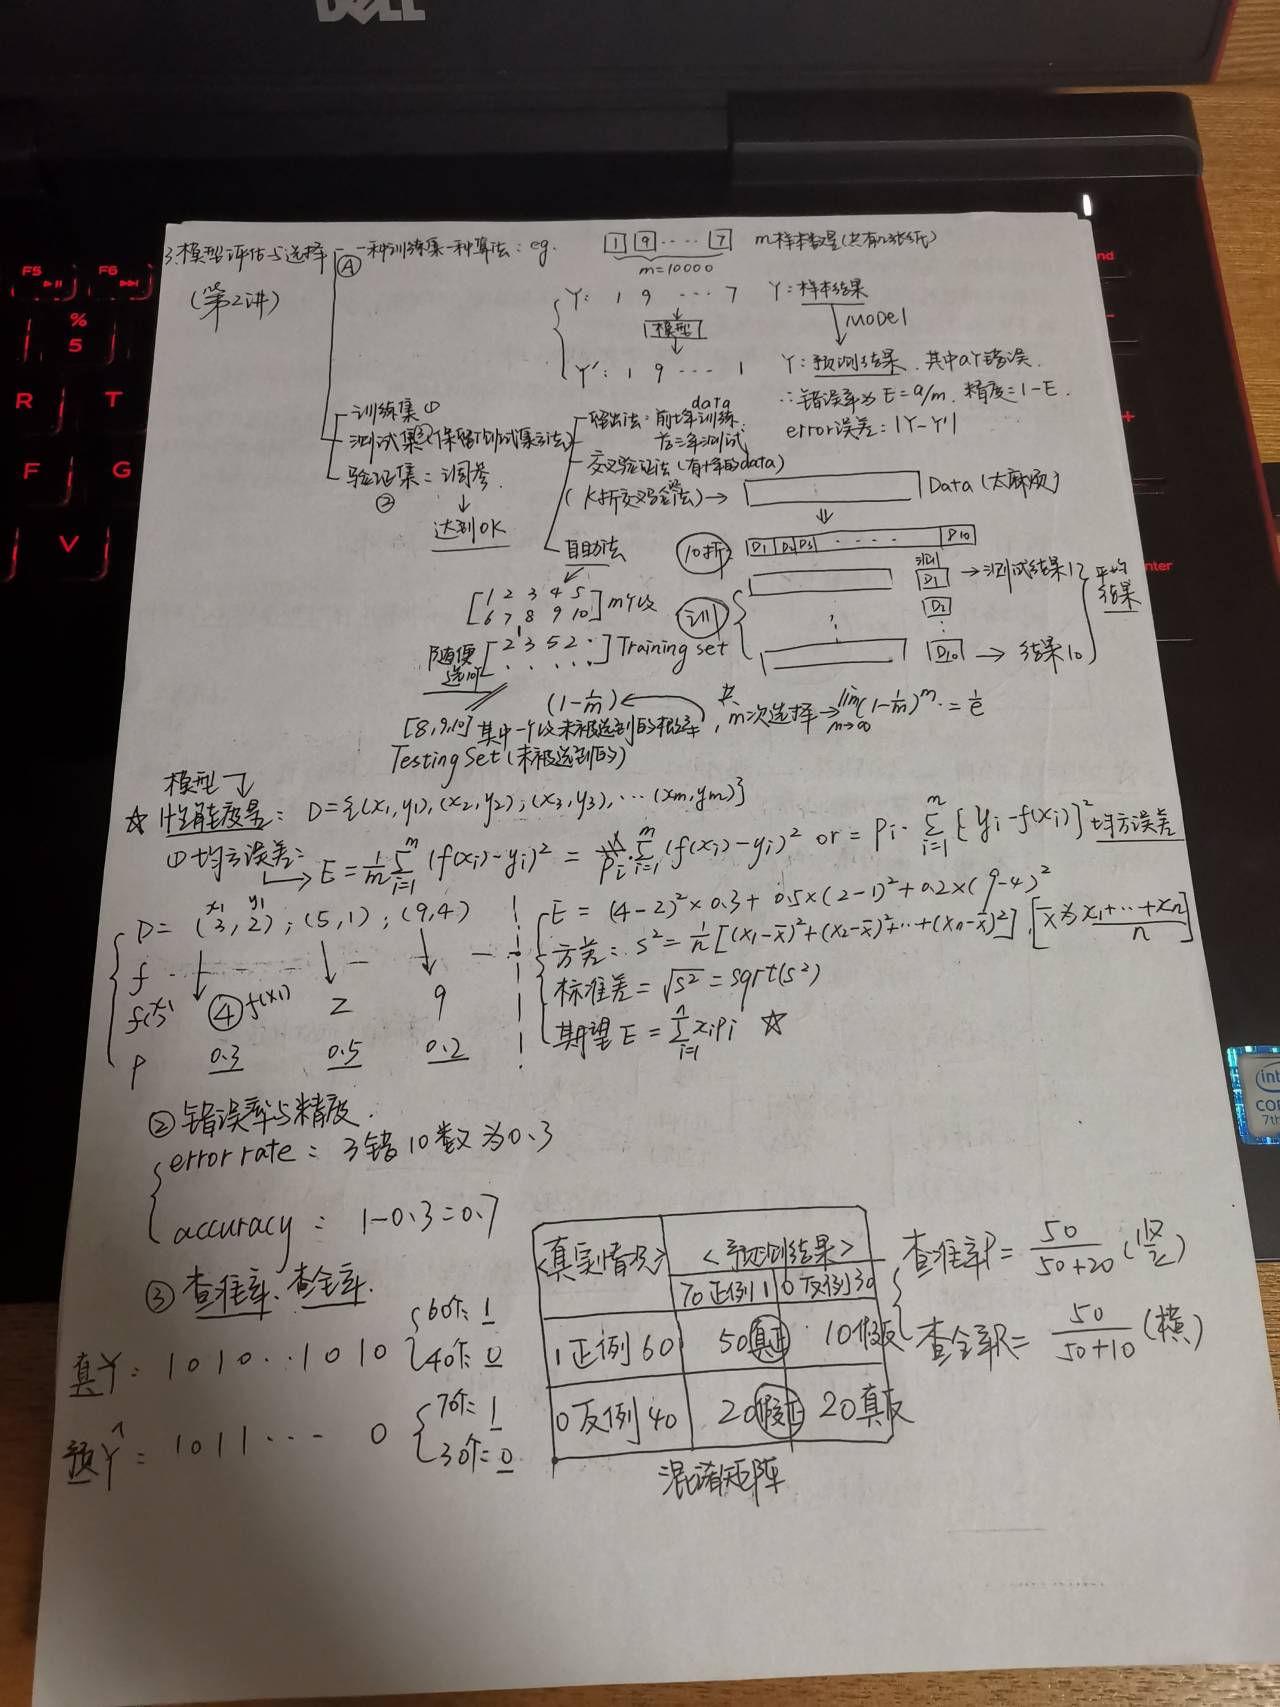 DELL
F5
F6
%
5
R
T
F
G
V
3.模型评估与选择
(第2讲)
Ⓐ 一种训练集一种算法: eg.
1 9 ···· 7
m=10000
Y: 1 9 ··· 7
Y: 样本结果
模型
MODEl
Y': 1 9 ··· 1
Y: 预测结果. 其中a个错误.
∴错误率为 E=a/m. 精度=1-E.
error误差: |Y-Y'|
训练集①
测试集②(保留测试集方法)
验证集: 调参.
③
达到OK
留出法: 前七年data训练.
后三年测试
交叉验证法 (有十年的data)
(K折交叉验证法) →
Data (太麻烦)
10折
D1 D2 D3 ····· D10
测
训
D1 → 测试结果1
D2
D10 → 结果10
平均
结果
自助法
[1 2 3 4 5
6 7 8 9 10] m个数
随便
选10个
[2 3 5 2 ·
· · · · ·] Training set
(1-1/m)
m次选择→ lim m→∞ (1-1/m)^m = 1/e
[8,9,10] 其中一个数未被选到的概率,
Testing Set (未被选到的)
模型
☆ 性能度量: D={(x1,y1),(x2,y2);(x3,y3),···(xm,ym)}
①均方误差:
E = 1/m Σ i=1 m (f(xi)-yi)² = Pi· Σ i=1 m (f(xi)-yi)² or = Pi· Σ i=1 m [yi-f(xi)]² 均方误差
x1 y1
D= (3,2); (5,1); (9,4)
f
f(x) ④f(x1) 2 9
P 0.3 0.5 0.2
E = (4-2)²×0.3+0.5×(2-1)²+0.2×(9-4)²
方差: S²= 1/n [(x1-x̄)²+(x2-x̄)²+···+(xn-x̄)²], [x̄为 x1+···+xn / n]
标准差 = √S² = sqrt(s²)
期望 E = Σ i=1 n xipi ☆
②错误率与精度.
error rate: 3错10数为0.3
accuracy: 1-0.3=0.7
③查准率、查全率.
真Y: 1010··:1010 {60个: 1
40个: 0
预Ŷ: 1011··· 0 {70个: 1
30个: 0
<真实情况> <预测结果>
70正例1 0反例30
1正例60 50真正 10假反
0反例40 20假正 20真反
混淆矩阵
查准率P= 50/50+20 (竖)
查全率R= 50/50+10 (横)